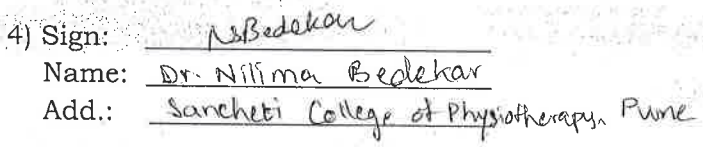 4) Sign: NSBedekar
Name: Dr. Nilima Bedekar
Add.: Sancheti College of Physiotherapy, Pune